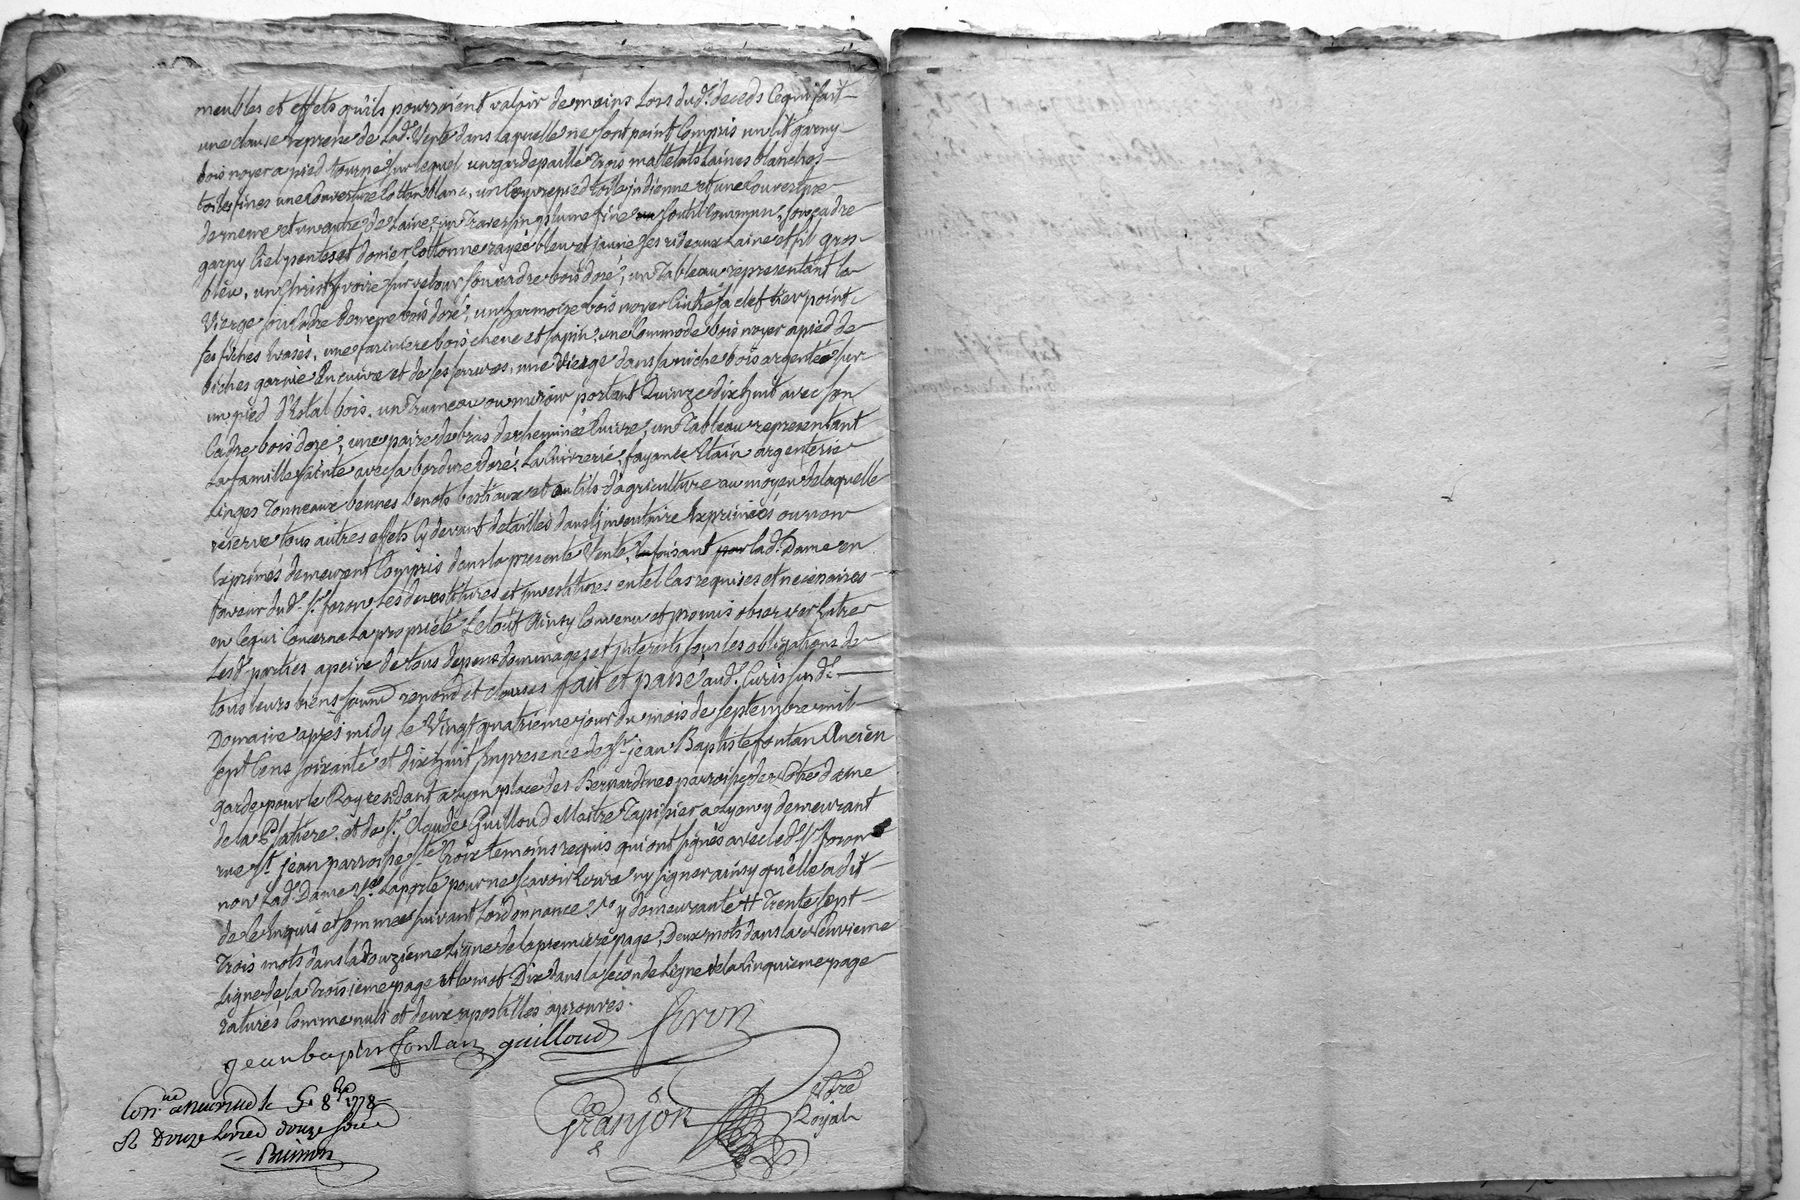 meubles et effets qu'ils pourraient valoir de moins Lors dud. deceds Cequi fait
une clause expresse de Lad.e Vente dans Laquelle ne sont point Compris un lit garny
bois noyer a pied tourné sur lequel un gardepaille Trois mattelats Laines blanches
toiles fines une Couverture Cotton blanc, un Couvrepied toile indienne et une Couverture
de meme et un autre de Laine, un Traversin plume fine Coutil Commun, son Cadre
garny Ciel pentes et dossier Cottonne rayée bleu et jaune ses rideaux Laine et fil gros
bleu, un Christ yvoire sur velour son Cadre bois doré, un Tableau representant la
Vierge son Cadre de meme bois doré, un garmoire bois noyer Cintrée a clef tierpoint
ses fiches brasés, une farinière bois chene et sapin, une Commode bois noyer a pied de
biches garnie En cuivre et de ses serrures, une Vierge dans sa niche bois argentée sur
un pied d'Estal bois, un Trumeau ou miroir portant Quinze dixhuit avec son
Cadre bois doré, une paire de bras de cheminée Cuivre, un Tableau representant
La famille sainte avec sa bordure doré, La Cuivrerie, fayance Etain argenterie
Linges Tonneaux bennes benots bestiaux et outils d'agriculture au moyen de laquelle
reserve tous autres effets Cy devant detaillés dans l'inventaire Exprimés ou non
Exprimés demeurent Compris dans la presente Vente, faisant lad.e Dame en
faveur dud. S.r foron Les devestitures et investitures en tel Cas requises et necessaires
en Cequi Concerne La propriété Le tout Ainsy Convenu et promis observer Entre
Lesd. parties a peine de tous depens dommages et interets sous les obligations de
tous leurs biens soumis renoncé et clauses fait et passé aud. Curis sud.
Domaine après midy Le Vingt quatrieme jour du mois de septembre mil
sept Cens soixante et dixhuit En presence de S.r jean Baptiste fontan Ancien
garde pour le Roy residant a Lyon place des Bernardines parroisse de notre dame
de la Platiere, et de S.r Claude Guilloud Maitre Tapissier a Lyon y demeurant
rue S.t jean parroisse S.te Croix temoins requis qui ont signés avec led. S.r foron
non Lad. Dame Laporte pour ne sçavoir Ecrire ny signer ainsy qu'elle a dit
de ce Enquis et sommée suivant Lordonnance y demeurante Trente sept
Trois mots dans la douzieme Ligne de la premiere page, Deux mots dans la neuvieme
Ligne de la Troisieme page et le mot Dix dans la seconde Ligne de la Cinquieme page
raturés Comme nuls et deux apostilles aprouvés.
jean baptiste fontan guilloud foron
Granjon
N.re
Royal
Con.lé a Neuville le 5. 8.bre 1778
R Douze Livres douze sols
Buisson